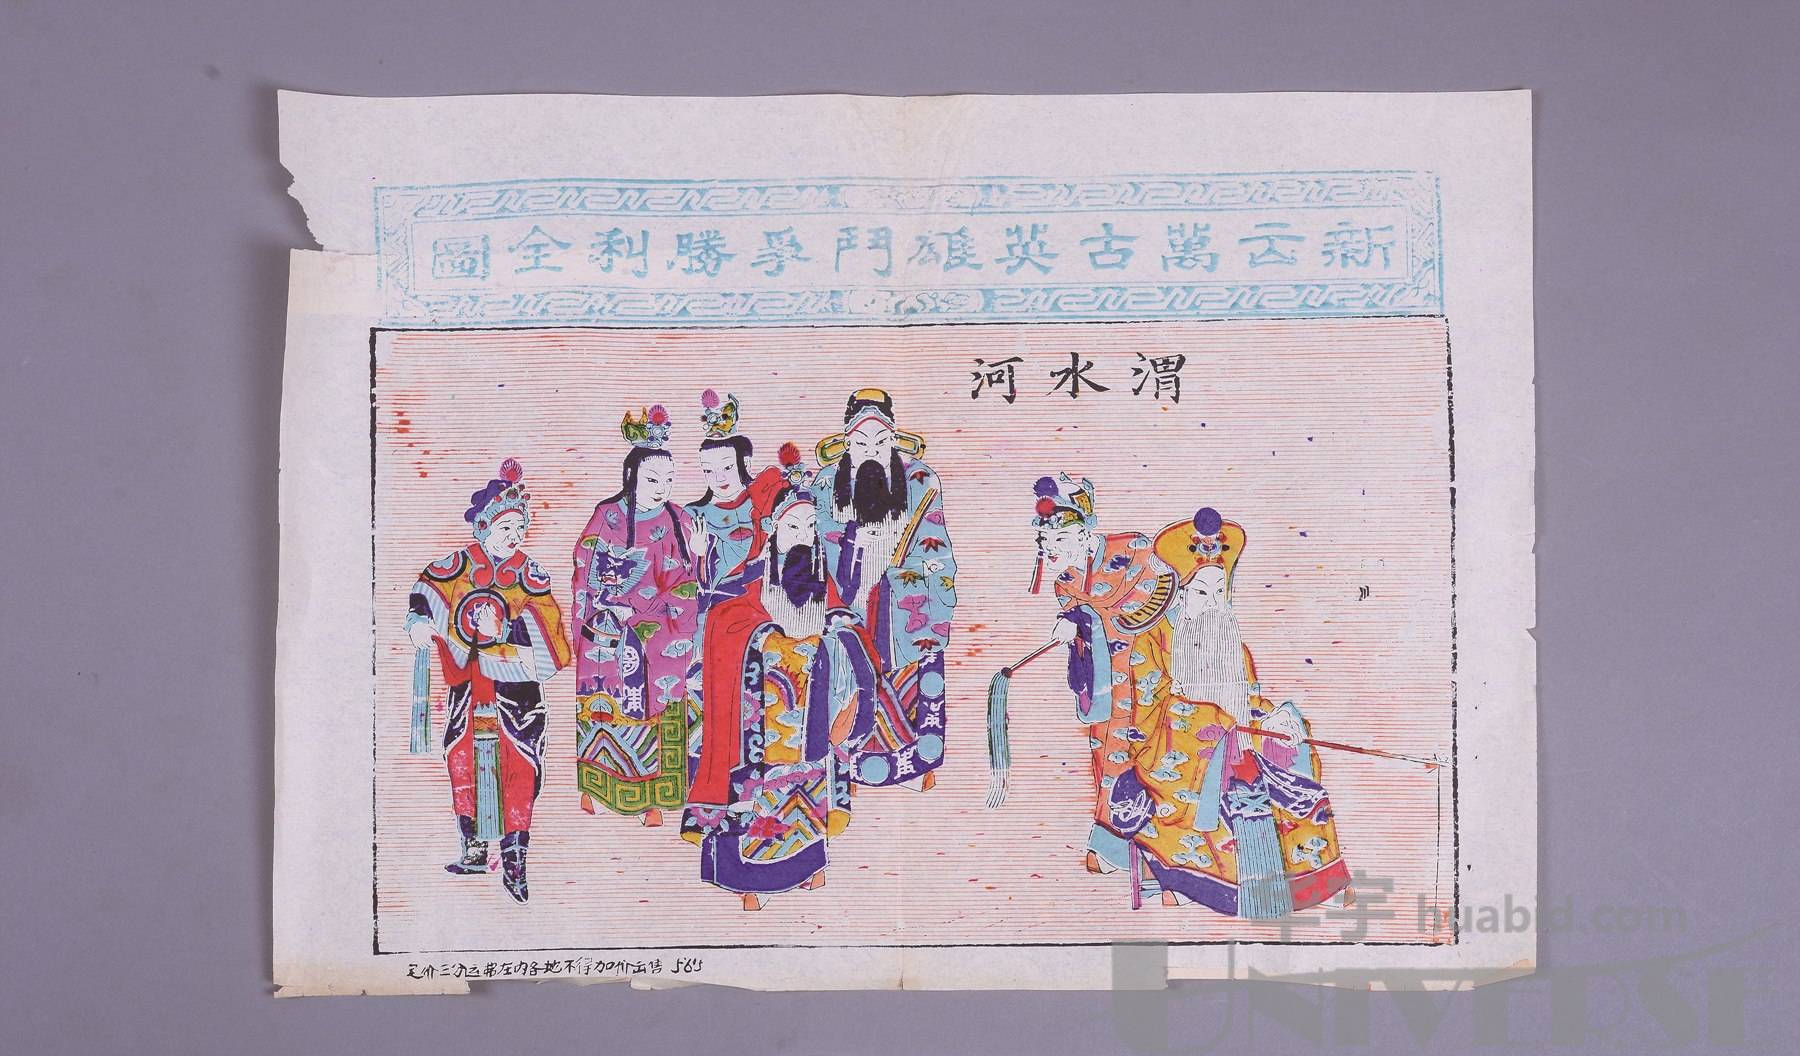 新云萬古英雄鬥爭勝利全圖
渭水河
定价三分运费在内各地不得加价出售 565
华宇 huabid.com
UNIVERSE